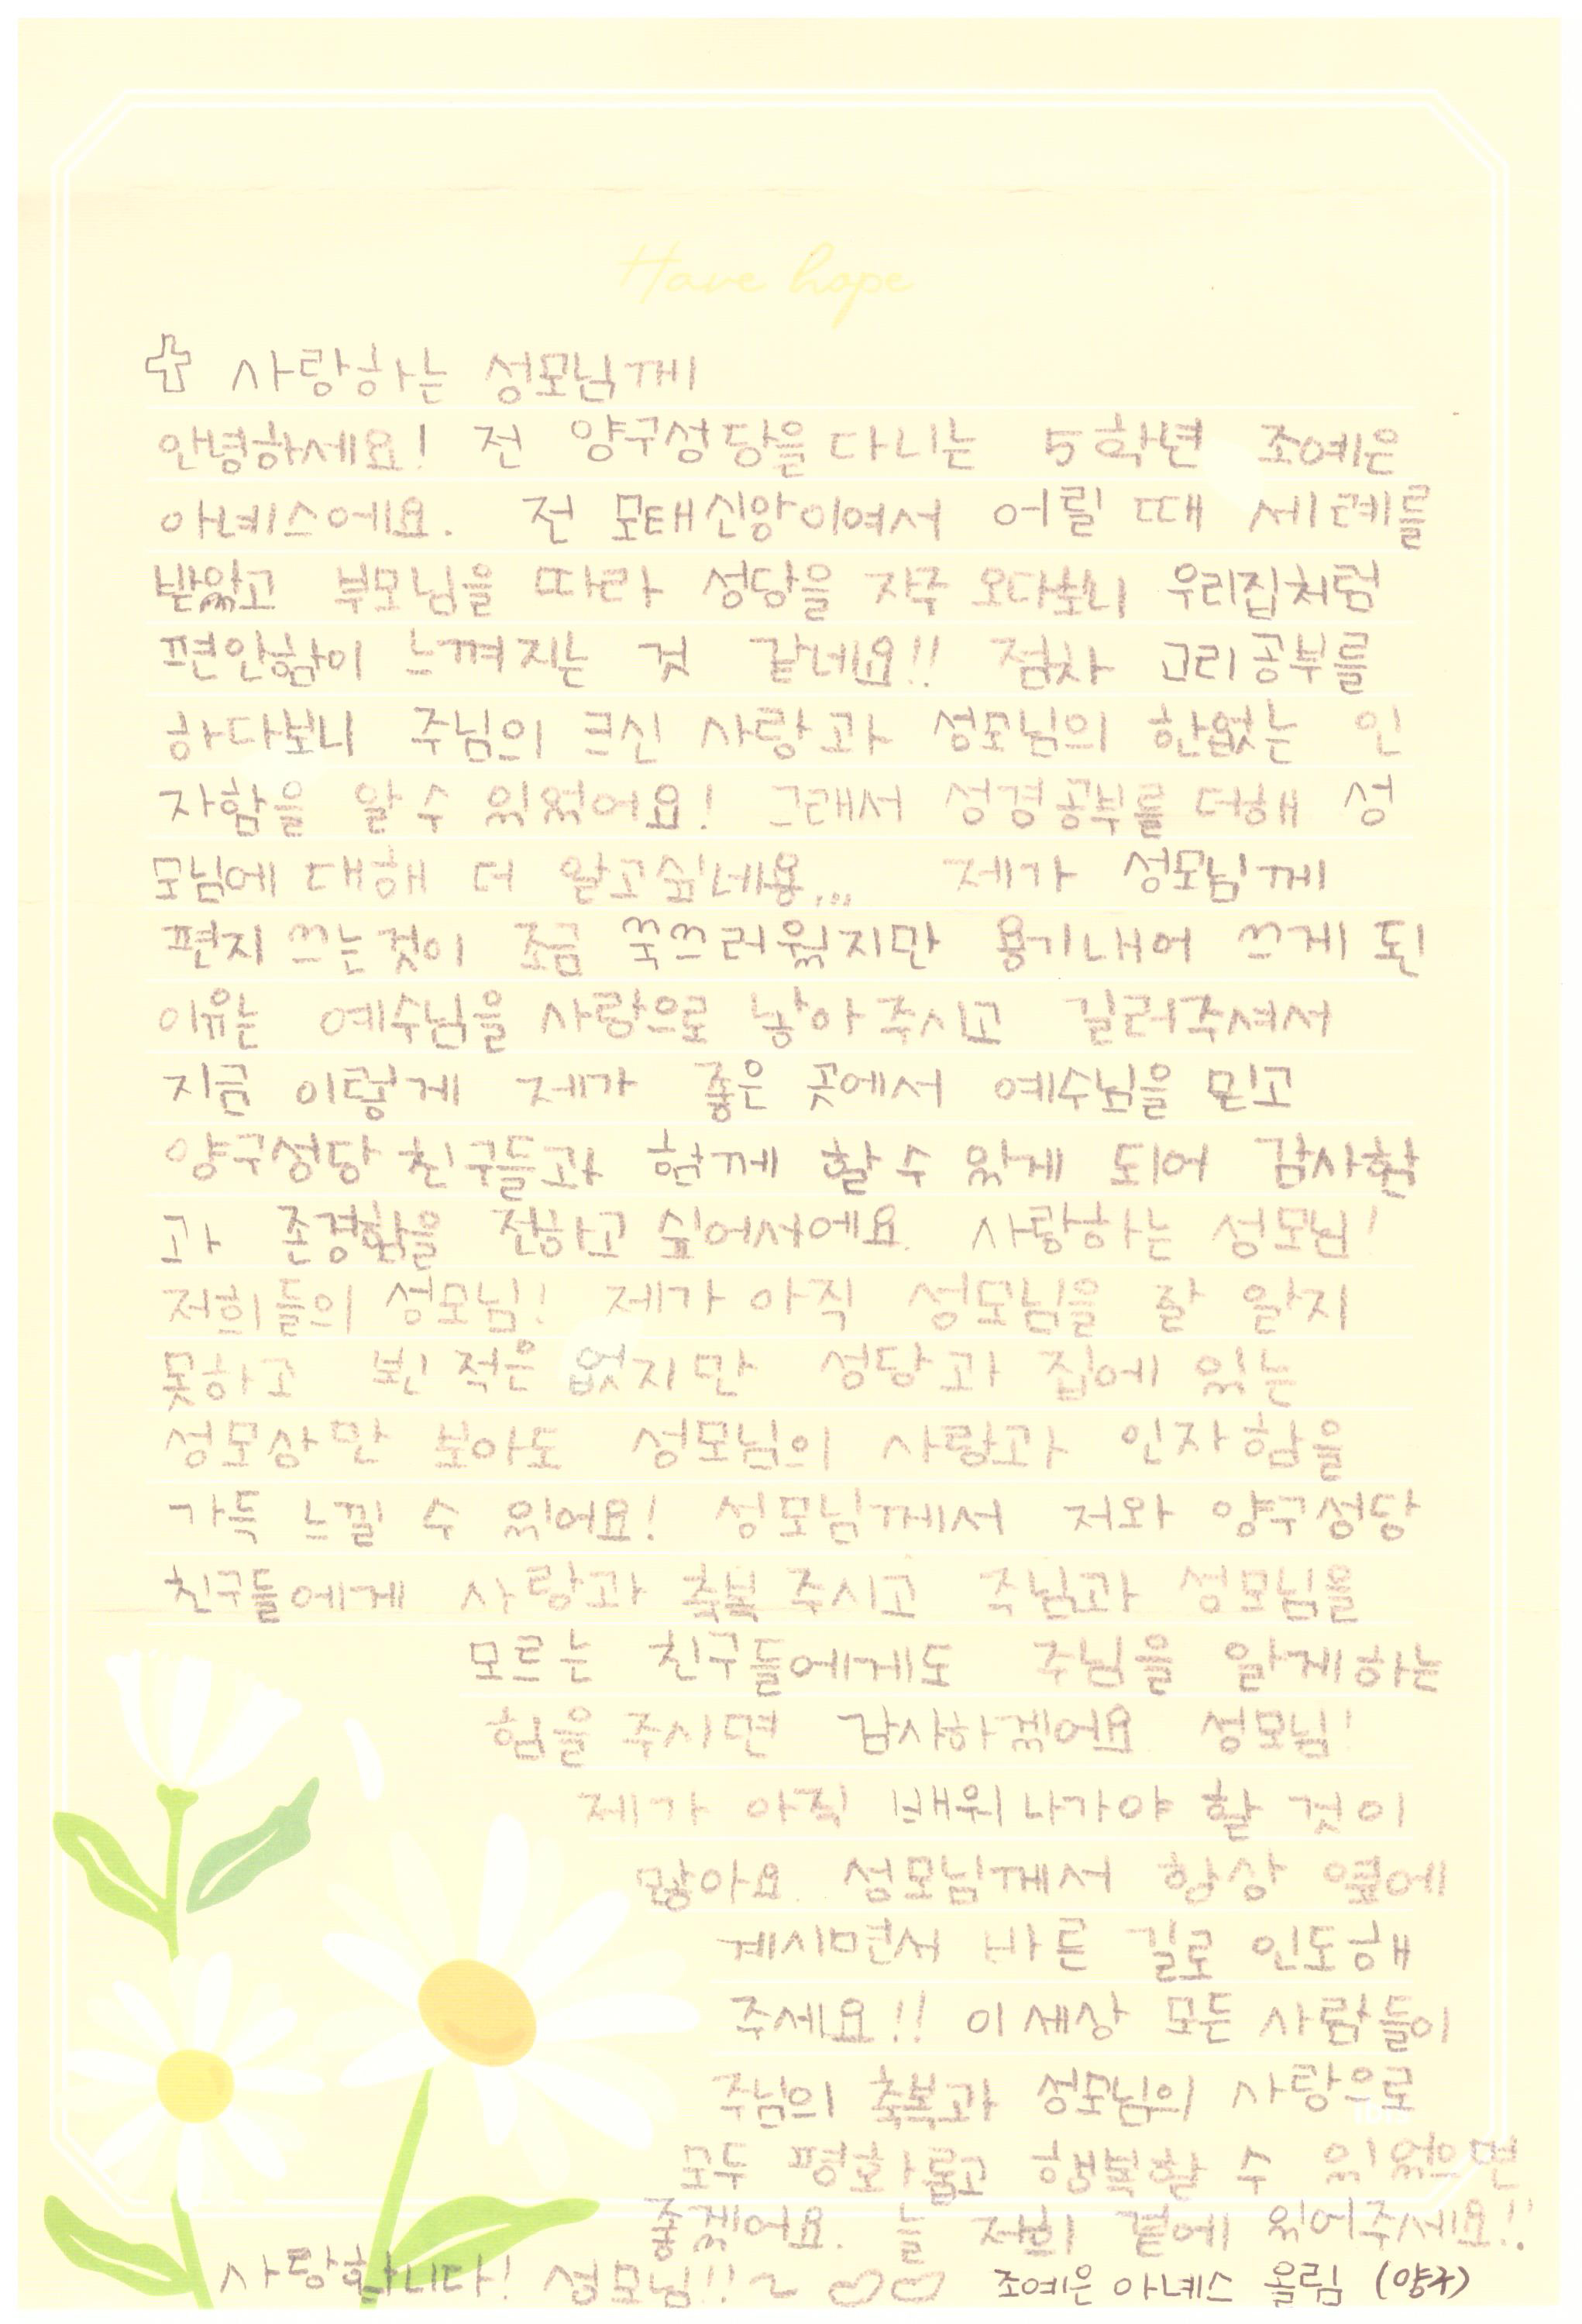 Have hope
사랑하는 성모님께
안녕하세요! 전 양구성당을 다니는 5학년 조예은
아녜스에요. 전 모태신앙이여서 어릴 때 세례를
받았고 부모님을 따라 성당을 자주 오다보니 우리집처럼
편안함이 느껴지는 것 같네요!! 점차 교리공부를
하다보니 주님의 크신 사랑과 성모님의 한없는 인
자함을 알 수 있었어요! 그래서 성경공부를 더해 성
모님에 대해 더 알고싶네용... 제가 성모님께
편지 쓰는것이 조금 쑥쓰러웠지만 용기내어 쓰게 된
이유는 예수님을 사랑으로 낳아주시고 길러주셔서
지금 이렇게 제가 좋은 곳에서 예수님을 믿고
양구성당 친구들과 함께 할 수 있게 되어 감사함
과 존경함을 전하고 싶어서에요. 사랑하는 성모님!
저희들의 성모님! 제가 아직 성모님을 잘 알지
못하고 뵌 적은 없지만 성당과 집에 있는
성모상만 보아도 성모님의 사랑과 인자함을
가득 느낄 수 있어요! 성모님께서 저와 양구성당
친구들에게 사랑과 축복 주시고 주님과 성모님을
모르는 친구들에게도 주님을 알게하는
힘을 주시면 감사하겠어요 성모님!
제가 아직 배워나가야 할 것이
많아요. 성모님께서 항상 옆에
계시면서 바른 길로 인도해
주세요!! 이 세상 모든 사람들이
주님의 축복과 성모님의 사랑으로
모두 평화롭고 행복할 수 있었으면
좋겠어요. 늘 저희 곁에 있어주세요!!
사랑합니다! 성모님!!~ ♡♡ 조예은 아녜스 올림 (양구)